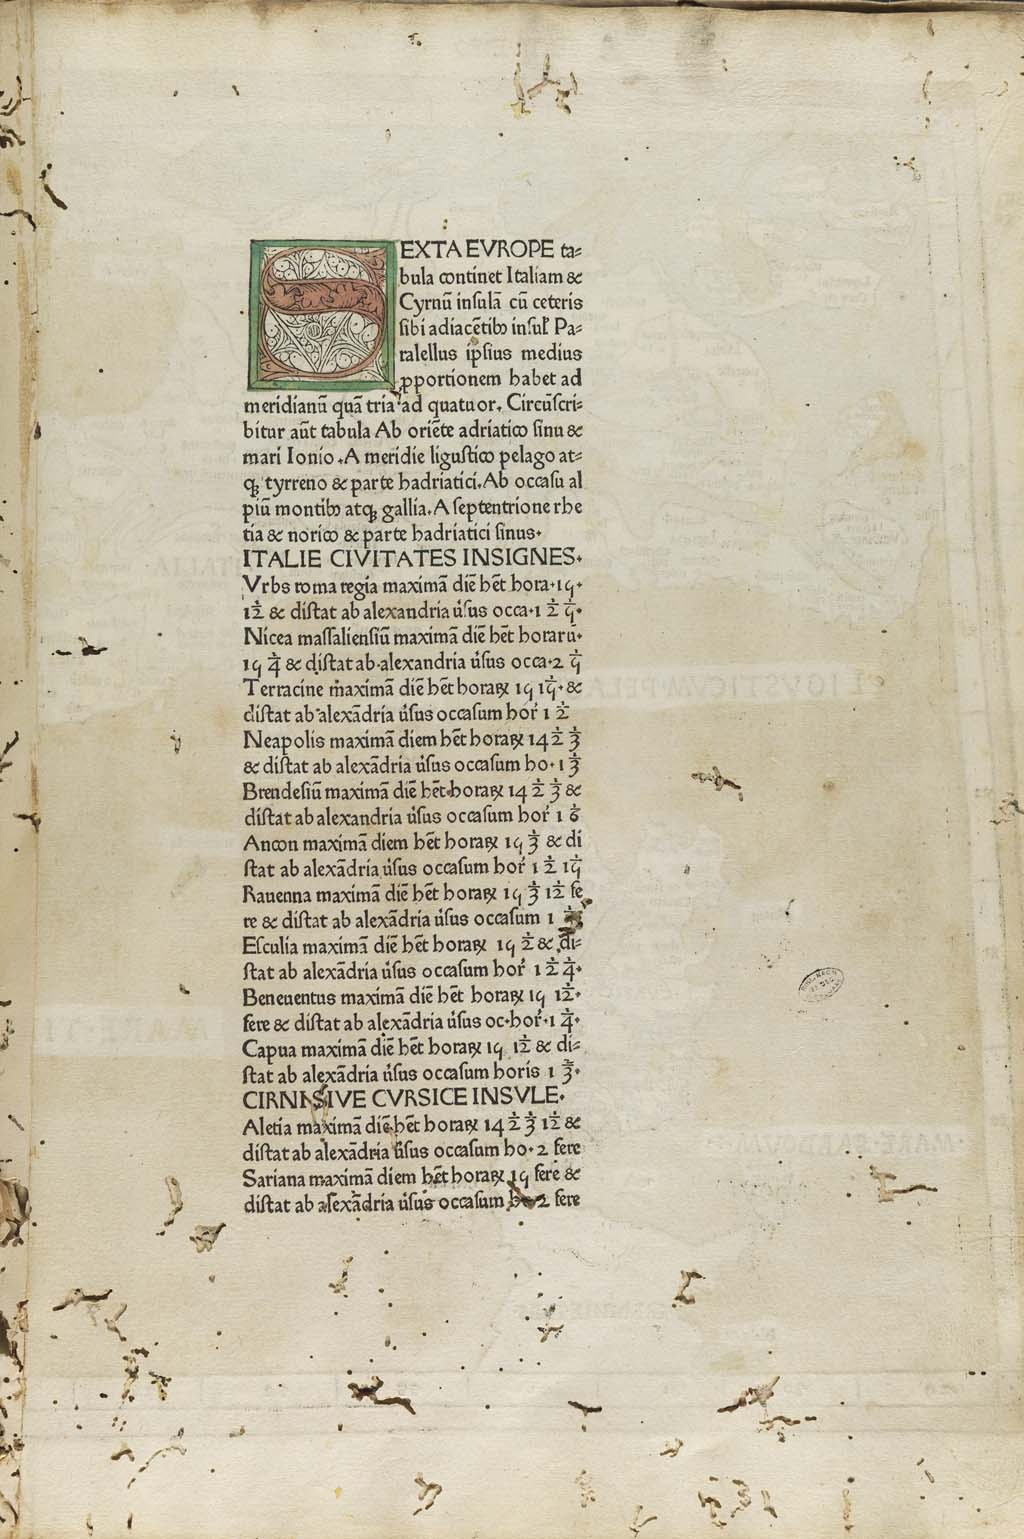 SEXTA EVROPE ta⸗
bula continet Italiam &
Cyrnū insulā cū ceteris
sibi adiacētibꝰ insuł Pa⸗
ralellus ipsius medius
ꝓportionem habet ad
meridianū quā tria ad quatuor. Circūscri⸗
bitur aūt tabula Ab oriēte adriatico sinu &
mari Ionio .A meridie ligustico pelago at⸗
qꝫ tyrreno & parte hadriatici. Ab occasu al
piū montibꝰ atqꝫ gallia. A septentrione rhe
tia & norico & parte hadriatici sinus.
ITALIE CIVITATES INSIGNES.
Vrbs roma regia maximā diē hēt hora. 15.
12 & distat ab alexandria ůsus occa. 1 2 5.
Nicea massaliensiū maximā diē hēt horarū.
15 4 & distat ab alexandria ůsus occa. 2 5
Terracine maximā diē hēt horaꝝ 15 15. &
distat ab alexādria ůsus occasum hor̉ 1 2
Neapolis maximā diem hēt horaꝝ 14 2 3
& distat ab alexādria ůsus occasum ho. 1 3
Brendesiū maximā diē hēt horaꝝ 14 2 3 &
distat ab alexandria ůsus occasum hor̉ 1 6
Ancon maximā diem hēt horaꝝ 15 3 & di
stat ab alexādria ůsus occasum hor̉ 1 2 15
Rauenna maximā diē hēt horaꝝ 15 3 12 fe
re & distat ab alexādria ůsus occasum 1
Esculia maximā diē hēt horaꝝ 15 2 & di⸗
stat ab alexādria ůsus occasum hor̉ 1 2 4.
Beneuentus maximā diē hēt horaꝝ 15 12.
fere & distat ab alexādria ůsus oc. hor̉. 1 4.
Capua maximā diē hēt horaꝝ 15 12 & di⸗
stat ab alexādria ůsus occasum horis 1 3.
CIRNI SIVE CVRSICE INSVLE.
Aletia maximā diē hēt horaꝝ 14 2 3 12 &
distat ab alexādria ůsus occasum ho. 2 fere
Sariana maximā diem hēt horaꝝ 15 fere &
distat ab alexādria ůsus occasum ho 2 fere